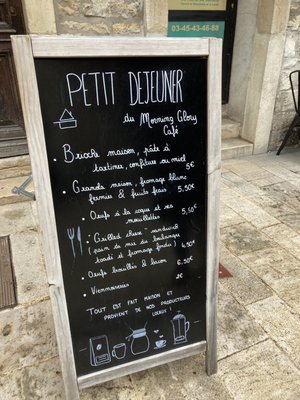 03-45-43-46-88
PETIT DEJEUNER
du Morning Glory
Café
• Brioche maison, pâte à
tartiner, confiture ou miel
5€
• Granola maison, fromage blanc
fermier & fruits frais 5,50€
• Oeufs à la coque et ses
mouillettes 5,50€
• Grilled cheese-sandwich
(pain de mie du boulanger
toasté et fromage fondu) 4,50€
• Oeufs brouillés & bacon 6.50€
• Viennoiseries 2€
TOUT EST FAIT MAISON ET
PROVIENT DE NOS PRODUCTEURS
LOCAUX !